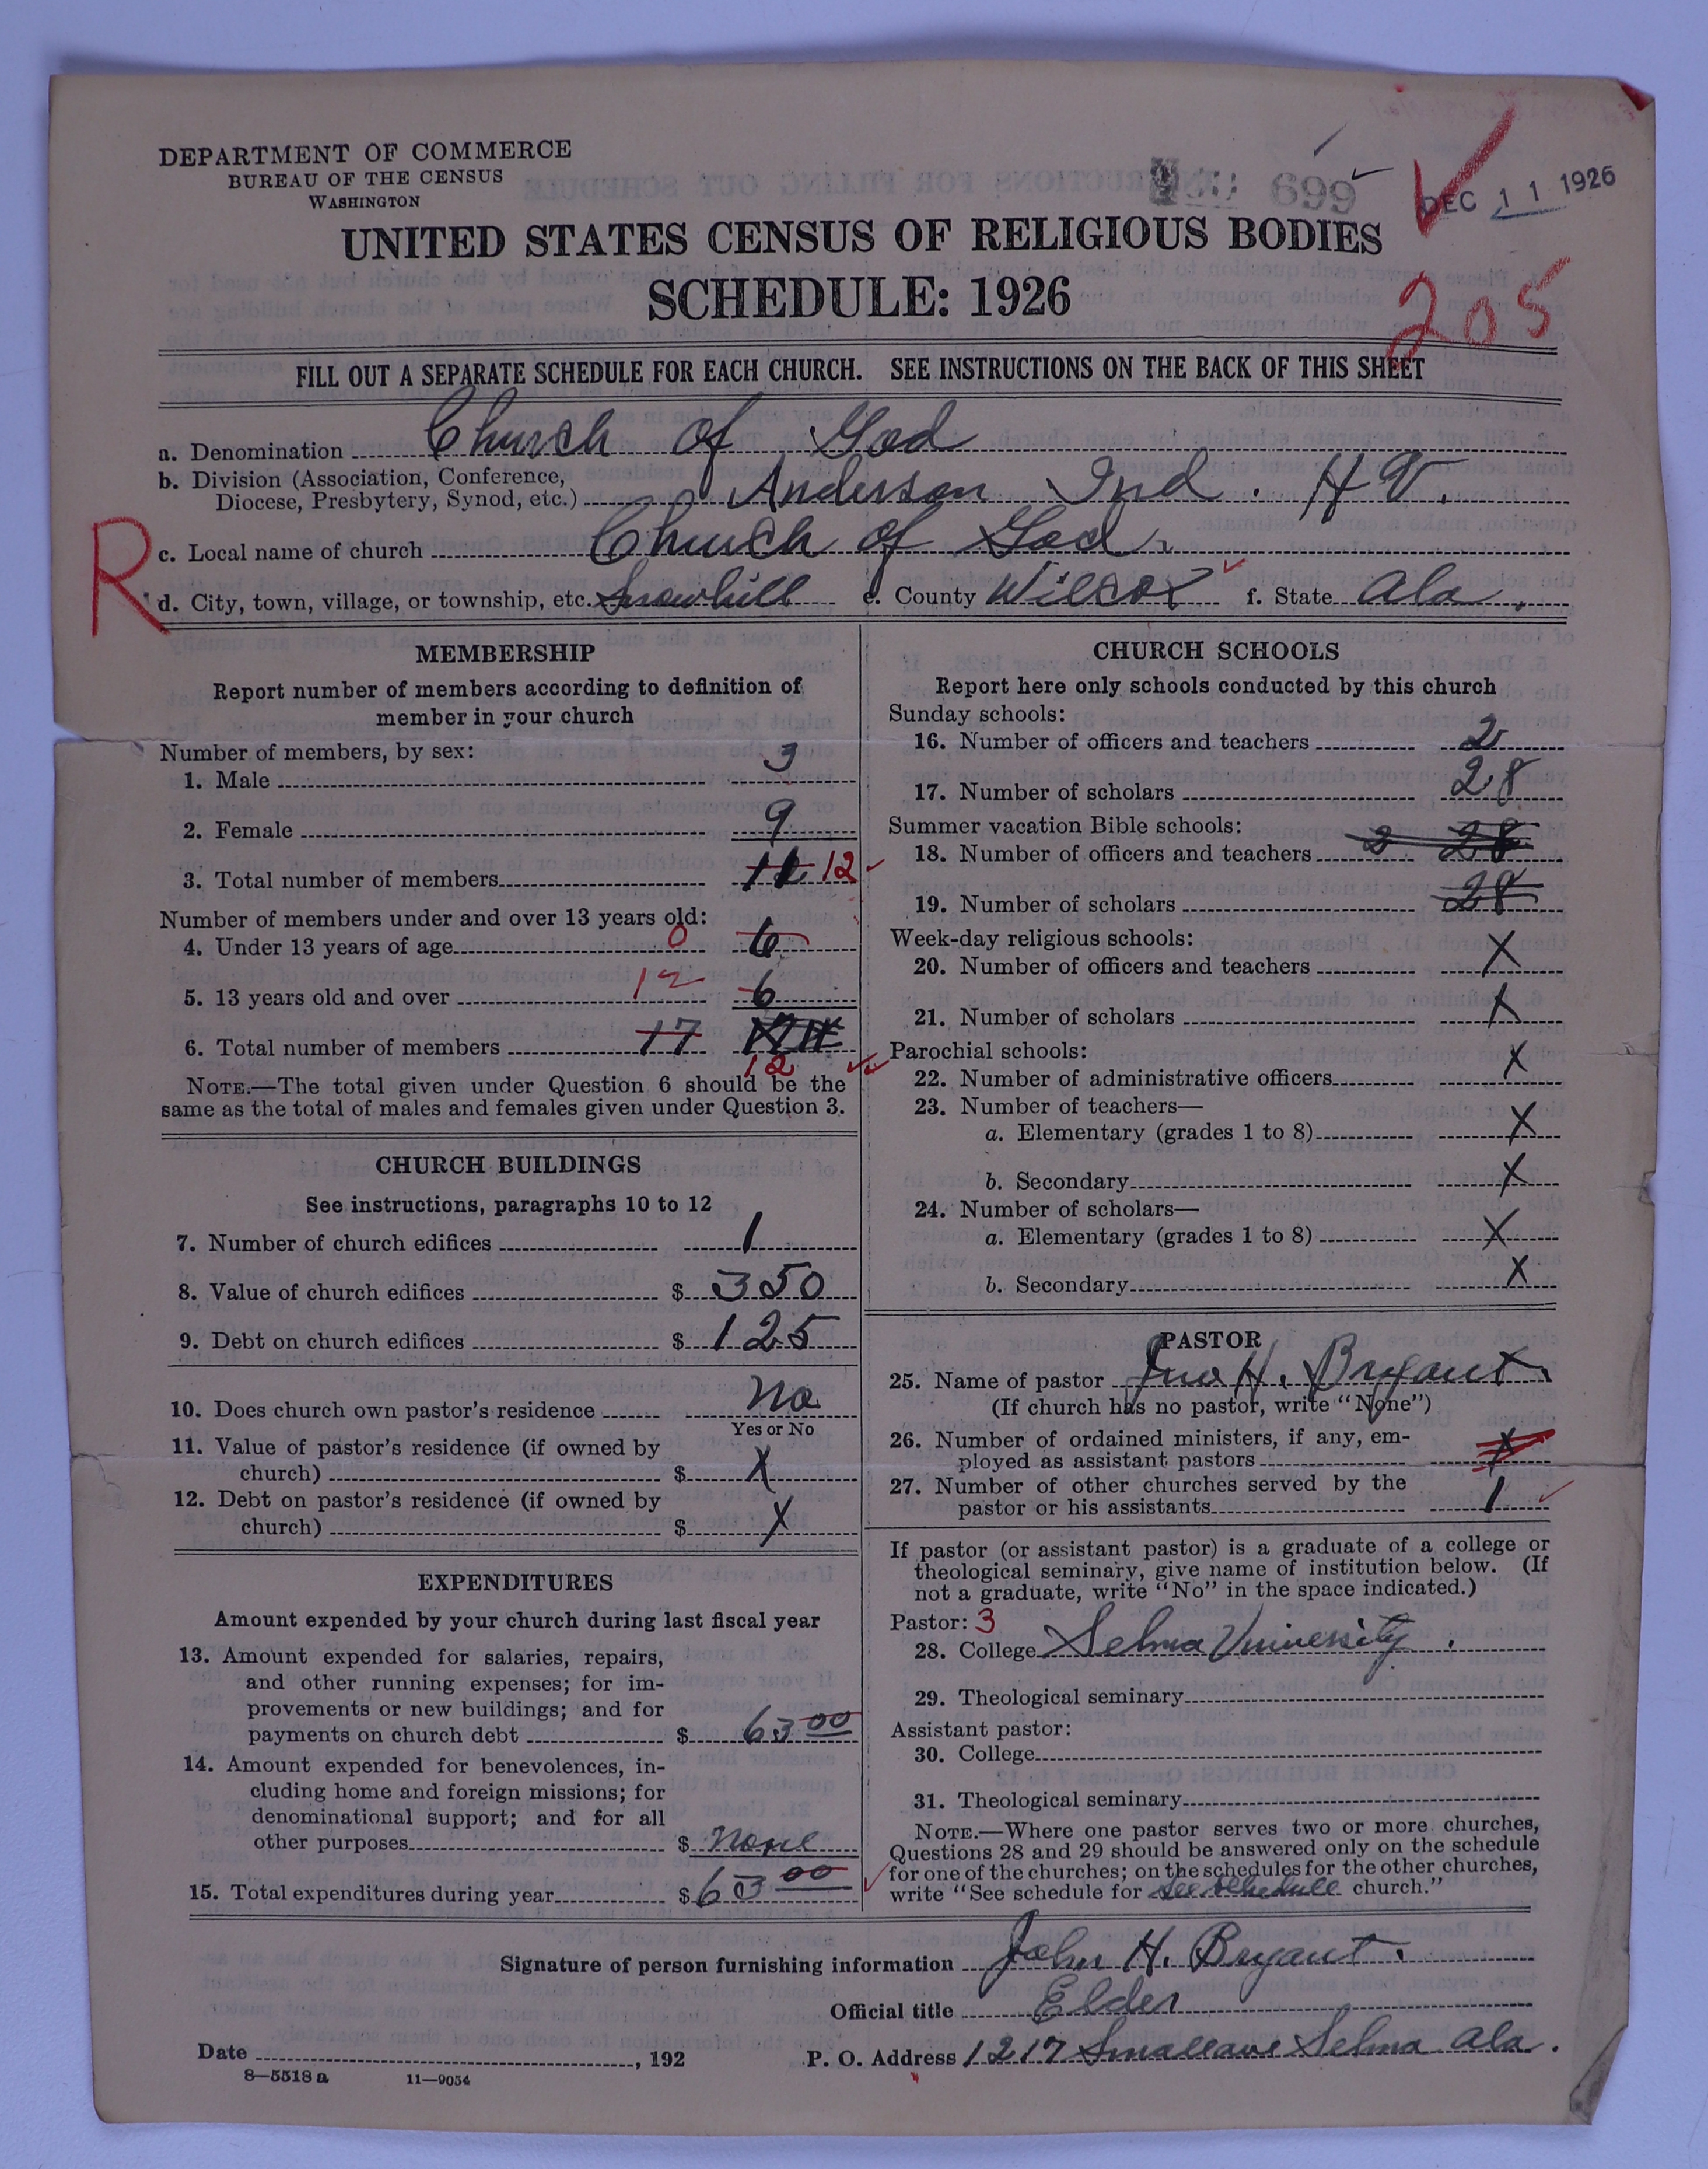 DEPARTMENT OF COMMERCE
BUREAU OF THE CENSUS
WASHINGTON
699
DEC 11 1926
UNITED STATES CENSUS OF RELIGIOUS BODIES
SCHEDULE: 1926
205
FILL OUT A SEPARATE SCHEDULE FOR EACH CHURCH. SEE INSTRUCTIONS ON THE BACK OF THIS SHEET
a. Denomination Church of God
b. Division (Association, Conference,
Diocese, Presbytery, Synod, etc.) Anderson Ind.
R
c. Local name of church Church of God
d. City, town, village, or township, etc. Snowhill e. County Wilcox f. State Ala.
MEMBERSHIP
Report number of members according to definition of
member in your church
Number of members, by sex:
1. Male 3
2. Female 9
3. Total number of members 12
Number of members under and over 13 years old:
4. Under 13 years of age 0 6
5. 13 years old and over 12 6
6. Total number of members 17
12
NOTE.—The total given under Question 6 should be the
same as the total of males and females given under Question 3.
CHURCH BUILDINGS
See instructions, paragraphs 10 to 12
7. Number of church edifices 1
8. Value of church edifices $ 350
9. Debt on church edifices $ 125
10. Does church own pastor's residence No
Yes or No
11. Value of pastor's residence (if owned by
church) $ X
12. Debt on pastor's residence (if owned by
church) $ X
EXPENDITURES
Amount expended by your church during last fiscal year
13. Amount expended for salaries, repairs,
and other running expenses; for im-
provements or new buildings; and for
payments on church debt $ 63.00
14. Amount expended for benevolences, in-
cluding home and foreign missions; for
denominational support; and for all
other purposes $ None
15. Total expenditures during year $ 63 00
CHURCH SCHOOLS
Report here only schools conducted by this church
Sunday schools:
16. Number of officers and teachers 2
17. Number of scholars 28
Summer vacation Bible schools:
18. Number of officers and teachers 2 28
19. Number of scholars 28
Week-day religious schools:
20. Number of officers and teachers X
21. Number of scholars X
Parochial schools:
22. Number of administrative officers X
23. Number of teachers—
a. Elementary (grades 1 to 8) X
b. Secondary X
24. Number of scholars—
a. Elementary (grades 1 to 8) X
b. Secondary X
PASTOR
25. Name of pastor Jno H. Bryant.
(If church has no pastor, write "None")
26. Number of ordained ministers, if any, em-
ployed as assistant pastors X
27. Number of other churches served by the
pastor or his assistants 1
If pastor (or assistant pastor) is a graduate of a college or
theological seminary, give name of institution below. (If
not a graduate, write "No" in the space indicated.)
Pastor: 3
28. College Selma University.
29. Theological seminary
Assistant pastor:
30. College
31. Theological seminary
NOTE.—Where one pastor serves two or more churches,
Questions 28 and 29 should be answered only on the schedule
for one of the churches; on the schedules for the other churches,
write "See schedule for See schedule church."
Signature of person furnishing information John H. Bryant.
Official title Elder
Date , 192 P. O. Address 1217 Small ave Selma Ala.
8—5518 a 11—9054